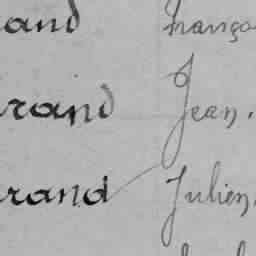 and franço
rand Jean.
rand Julien.